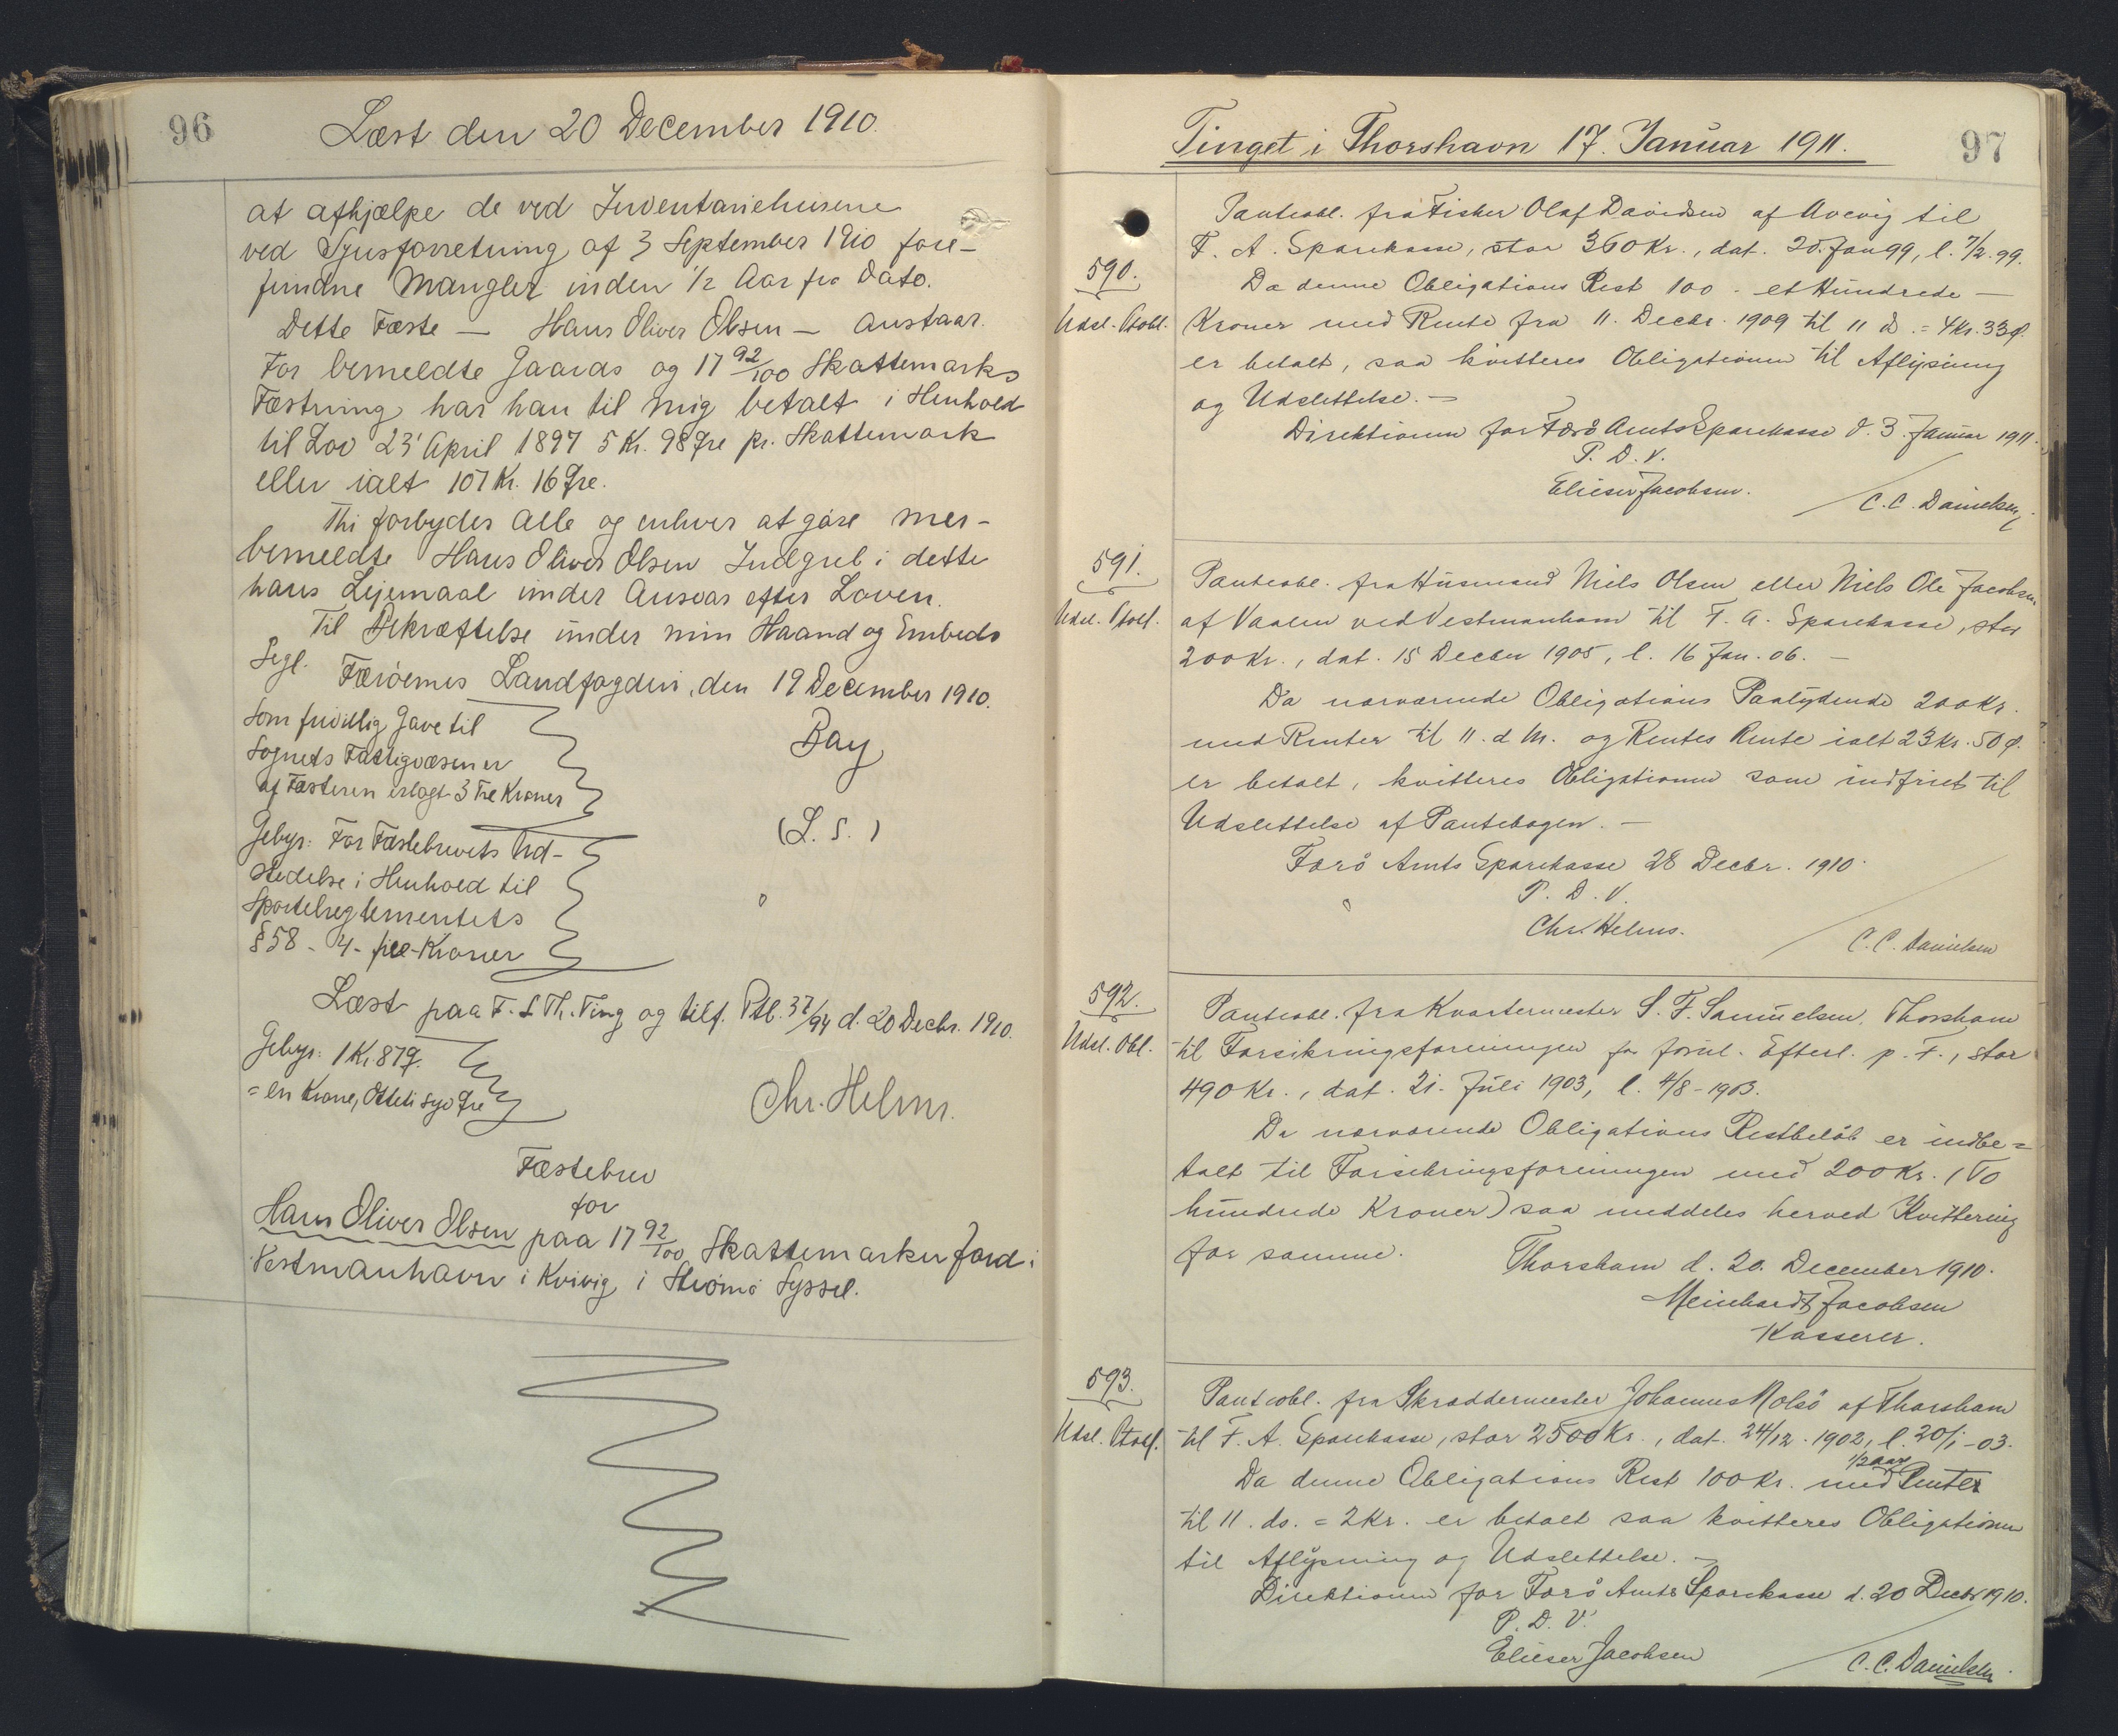 96
Læst den 20 December 1910.
at afhjælpe de ved Inventariehusene
ved Synsforretning af 3 September 1910 fore-
fundne Mangler inden 1/2 Aar fra Dato.
Dette Fæste — Hans Oliver Olsen — anstaar.
For bemeldte Gaards og 17 92/100 Skattemarks
Fæstning har han til mig betalt i Henhold
til Lov 23' April 1897 5 Kr. 98 Øre pr. Skattemark
eller ialt 107 Kr. 16 Øre.
Thi forbydes alle og enhver at gøre mer-
bemeldte Hans Oliver Olsen Indgreb i dette
hans Lejemaal under Ansvar efter Loven.
Til Bekræftelse under min Haand og Embeds
Segl.
Færøernes Landfogderi, den 19 December 1910.
Som frivillig Gave til
Sognets Fattigvæsen er
af Fæsteren erlagt 3 Tre Kroner
Bay
Gebyr: For Fæstebrevets Ud-
stedelse i Henhold til
Sportelreglementets
§ 58 - 4 - fire - Kroner
(L. S.)
Læst paa F. S. Th. Ting og tilf. Ptb. 37/94 d. 20 Decbr. 1910.
Gebyr: 1 Kr. 87 Ø.
= en Krone, Otteti syv Øre
Chr. Helms.
Fæstebrev
for
Hans Oliver Olsen paa 17 92/100 Skattemarker Jord i
Vestmanhavn i Kvivig i Strømø Syssel.
Tinget i Thorshavn 17. Januar 1911.
97
590.
Udsl. Ptobl.
Panteobl. fra Fisker Olaf Davidsen af Avevig til
F. A. Sparekasse, stor 360 Kr., dat. 20. Jan 99, l. 7/2. 99.
Da denne Obligations Rest 100 - et Hundrede —
Kroner med Rente fra 11. Decbr. 1909 til 11 d. = 4 Kr. 33 Ø.
er betalt, saa kvitteres Obligationen til Aflysning
og Udslettelse. —
Direktionen for Færø Amts Sparekasse d. 3. Januar 1911.
P. D. V.
Elieser Jacobsen.
/ C. C. Danielsen
591.
Udsl. Ptobl.
Panteobl. fra Husmand Niels Olsen eller Niels Ole Jacobsen
af Vaalen ved Vestmanhavn til F. A. Sparekasse, stor
200 Kr., dat. 15 Decber 1905, l. 16 Jan. 06. —
Da nærværende Obligations Paalydende 200 Kr.
med Renter til 11. d. M. og Rentes Rente ialt 23 Kr. 50 Ø.
er betalt, kvitteres Obligationen som indfriet til
Udslettelse af Pantebogen. —
Færø Amts Sparekasse 28 Decbr. 1910.
P. D. V.
Chr. Helms.
/ C. C. Danielsen
592.
Udsl. Obl.
Panteobl. fra Kvartermester S. F. Samuelsen, Thorshavn
til Forsikringsforeningen for forul. Efterl. p. F., stor
490 Kr., dat. 21. Juli 1903, l. 4/8 - 1903.
Da nærværende Obligations Restbeløb er indbe=
talt til Forsikringsforeningen med 200 Kr. (To
hundrede Kroner) saa meddeles herved Kvittering
for samme.
Thorshavn d. 20. December 1910.
Meinhardt Jacobsen
Kasserer.
593.
Udsl. Ptobl.
Panteobl. fra Skræddermester Johannes Nolsø af Thorshavn
til F. A. Sparekasse, stor 2500 Kr., dat. 24/12. 1902, l. 20/1 - 03.
1/2 Aars
Da denne Obligations Rest 100 Kr. med Renter
til 11. ds. = 2 Kr. er betalt saa kvitteres Obligationen
til Aflysning og Udslettelse. —
Direktionen for Færø Amts Sparekasse d. 20 Decbr 1910.
P. D. V.
Elieser Jacobsen
/ C. C. Danielsen.